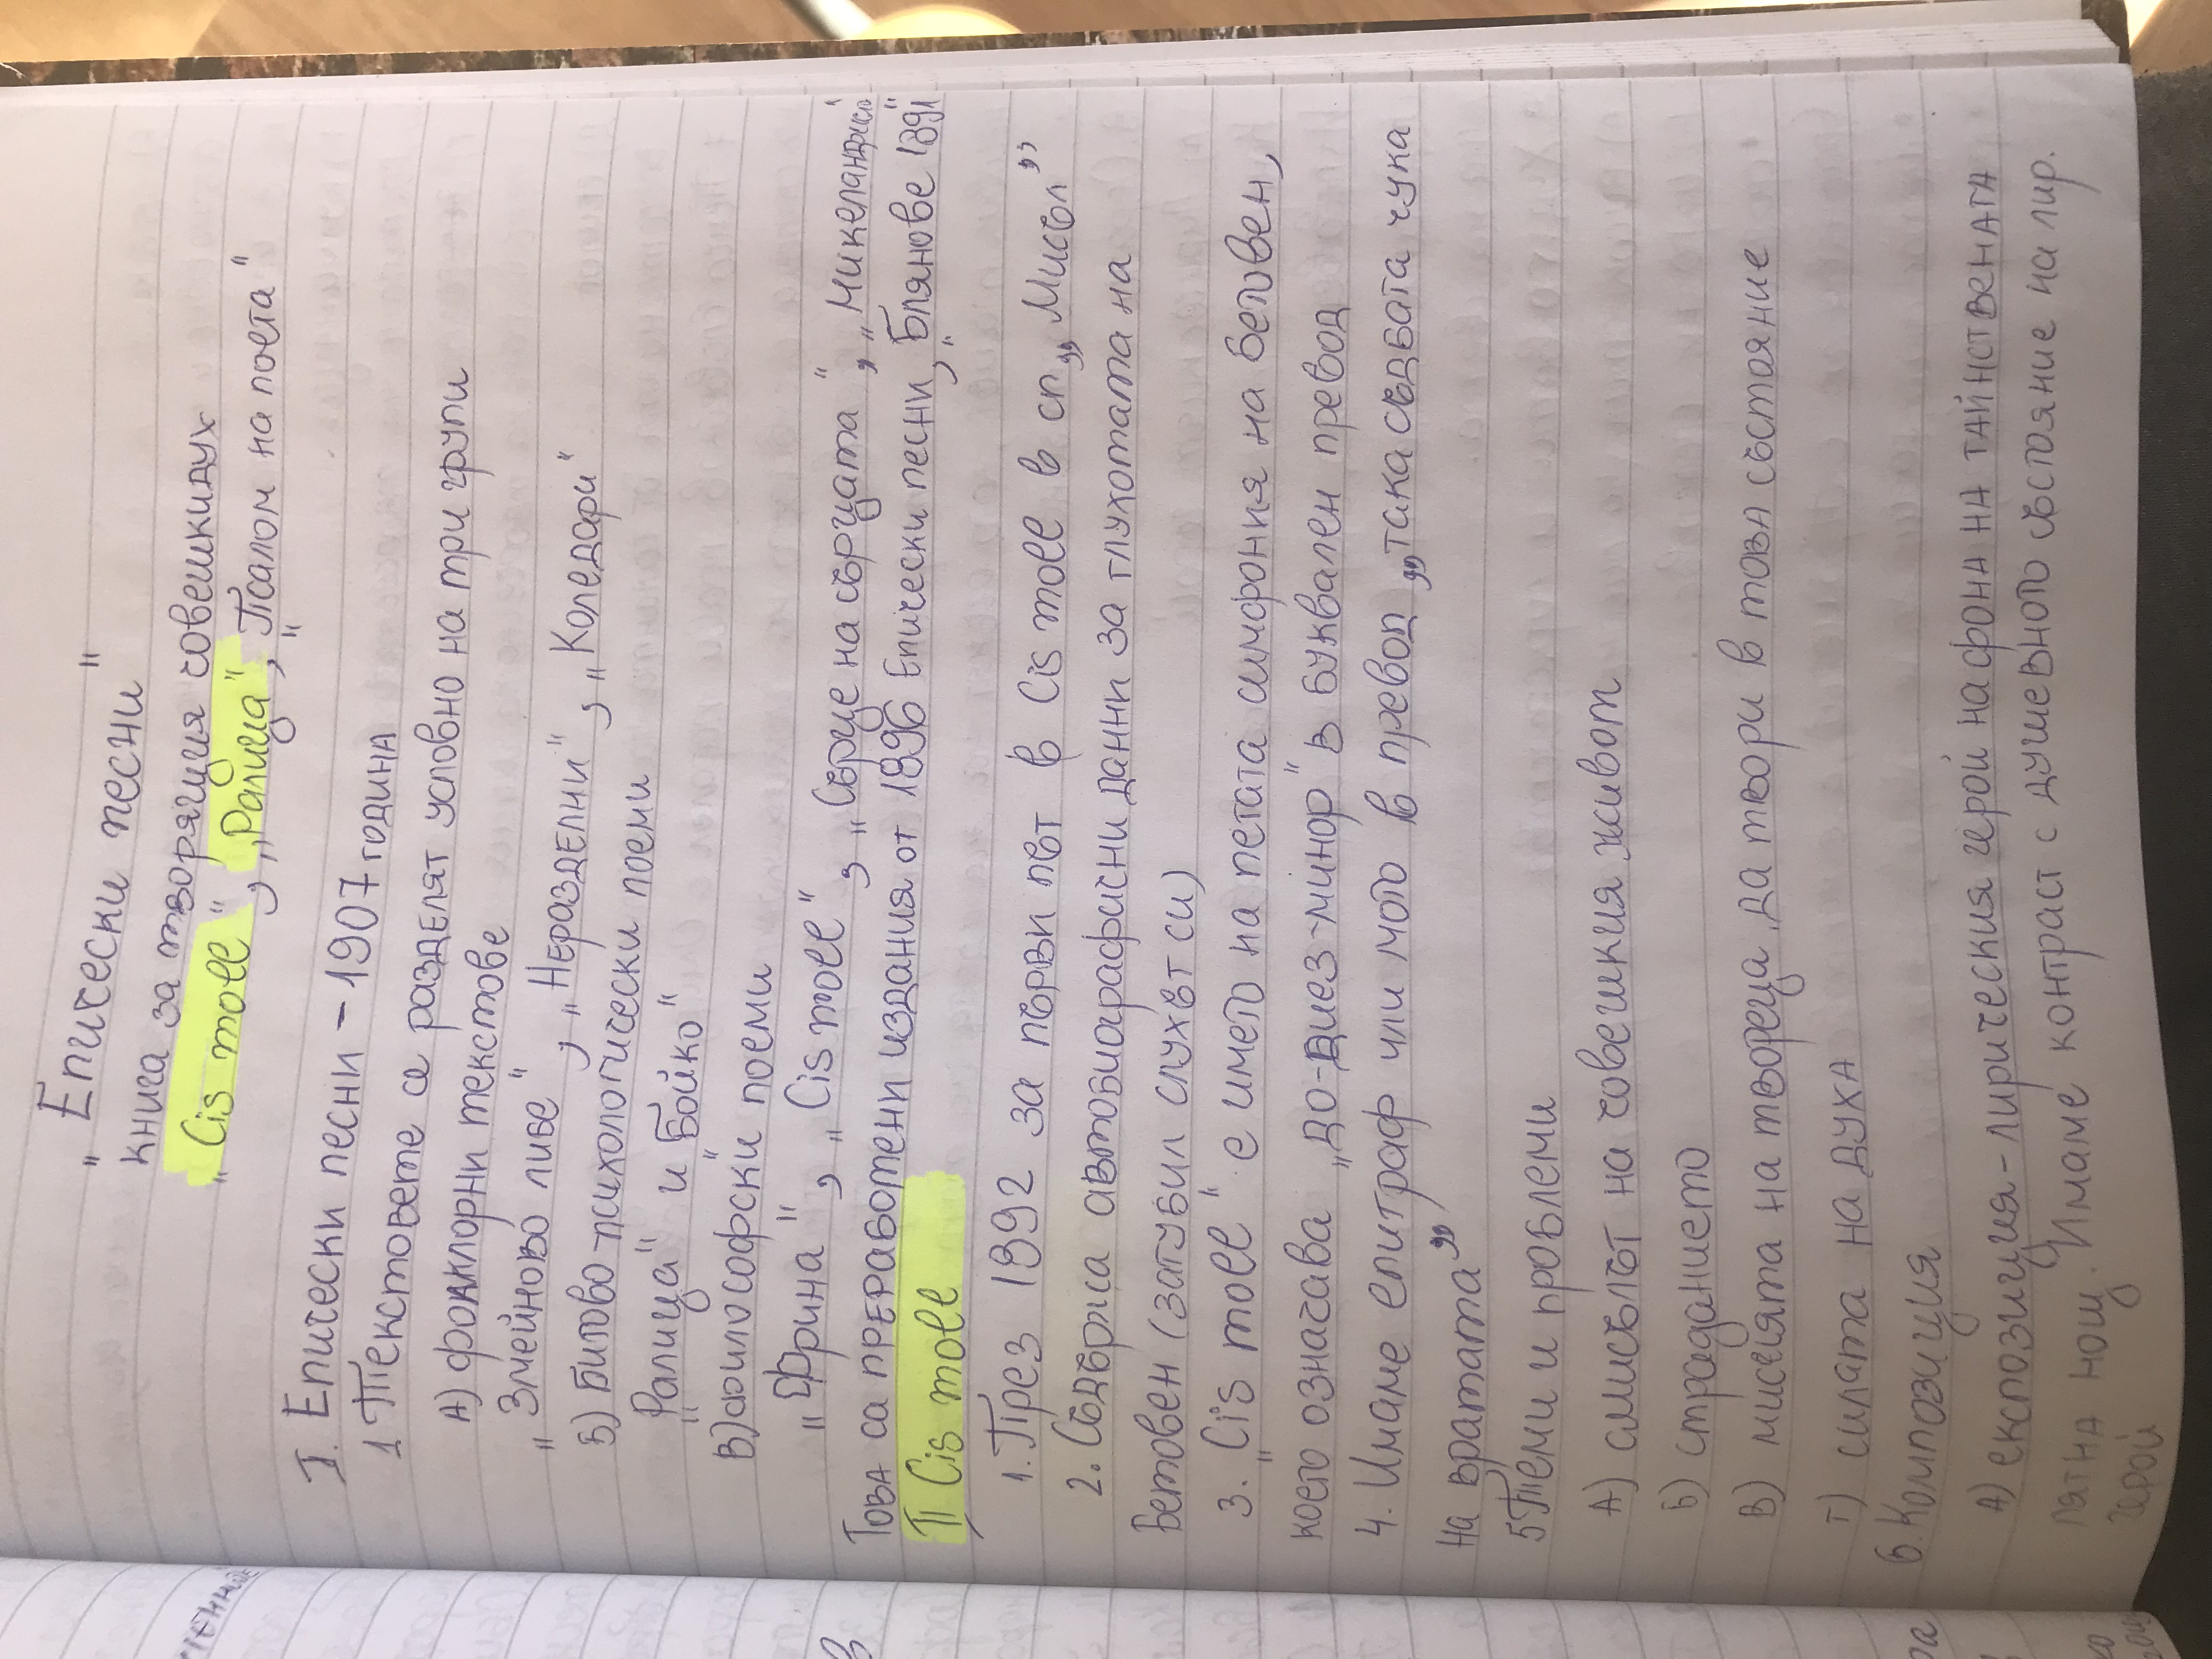 „Епически песни"
книга за творящия човешки дух
„Cis moll", „Ралица", „Псалом на поета"
I. Епически песни – 1907 година
1 Текстовете се разделят условно на три групи
А) фолклорни текстове
„Змейново либе", „Неразделни", „Коледари"
Б) Битово-психологически поеми
„Ралица" и „Бойко"
В) философски поеми
„Фрина", „Cis moll", „Сърце на сърцата", „Микеланджело"
Това са преработени издания от 1896 Епически песни, „Блянове 1891"
II Cis moll
1. През 1892 за първи път в Cis moll в сп „Мисъл"
2. Съдържа автобиографисни данни за глухотата на
Бетовен (загубил слухът си)
3. „Cis moll" е името на петата симфония на Бетовен,
което означава „до-диез-минор" в буквален превод
4. Имаме епиграф или мото в превод „така съдбата чука
на вратата"
5 Теми и проблеми
А) смисълът на човешкия живот
Б) страданието
В) мисията на твореца да твори в това състояние
Г) силата на духа
6. Композиция
А) експозиция – лирическия герой на фона на тайнствената
лятна нощ. Имаме контраст с душевното състояние на лир.
герой